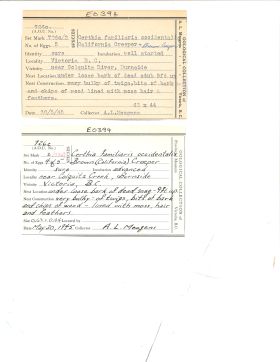 E0394
726c.
Set Mark 726a/5 Certhia familiaris occidentalis
No. of Eggs 5 California Creeper
Identity sure Incubation, well started
Locality Victoria B. C.
near Colquitz River, Burnside
Nest Location under loose bark of dead stub 8ft up
Nest Construction, very bulky of twigs, bits of bark
and chips of wood lined with moss hair &
feathers.
43 x 44
Date 20/5/45 Collector A.L.Meugens
OOLOGICAL COLLECTION of
E0394
726c
Set Mark Certhia familiaris occidentalis
No. of Eggs 5 Brown (California) Creeper
Identity sure Incubation advanced
Locality near Colquitz Creek, Burnside
Victoria, B.C.
Nest Location under loose bark of dead snag
Nest Construction very bulky - of twigs, bits of bark
and chips of wood - lined with moss, hair
and feathers
Date May 20, 1945 Collector A. L. Meugens